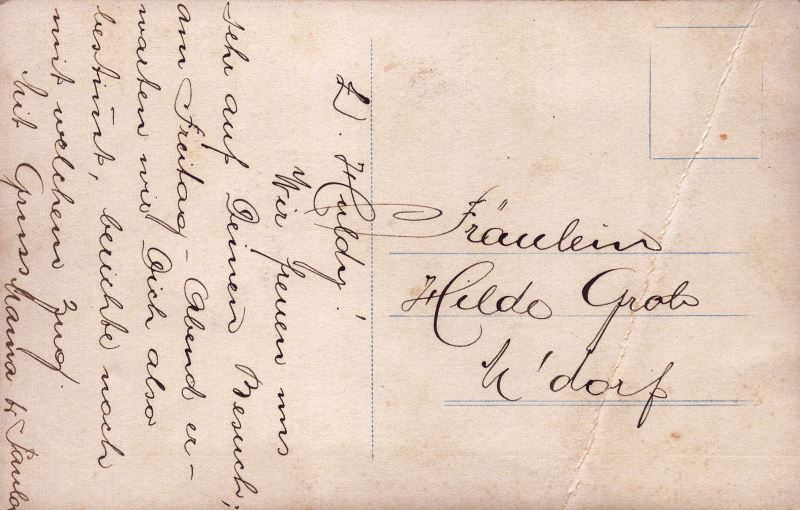 L. Huldy!
Wir freuen uns
sehr auf Deinen Besuch;
am Freitag - Abend er-
warten wir Dich also
bestimt, berichte noch
mit welchem Zug.
Mit Gruss Mama & Paula
Fräulein
Hilda Grob
N'dorf